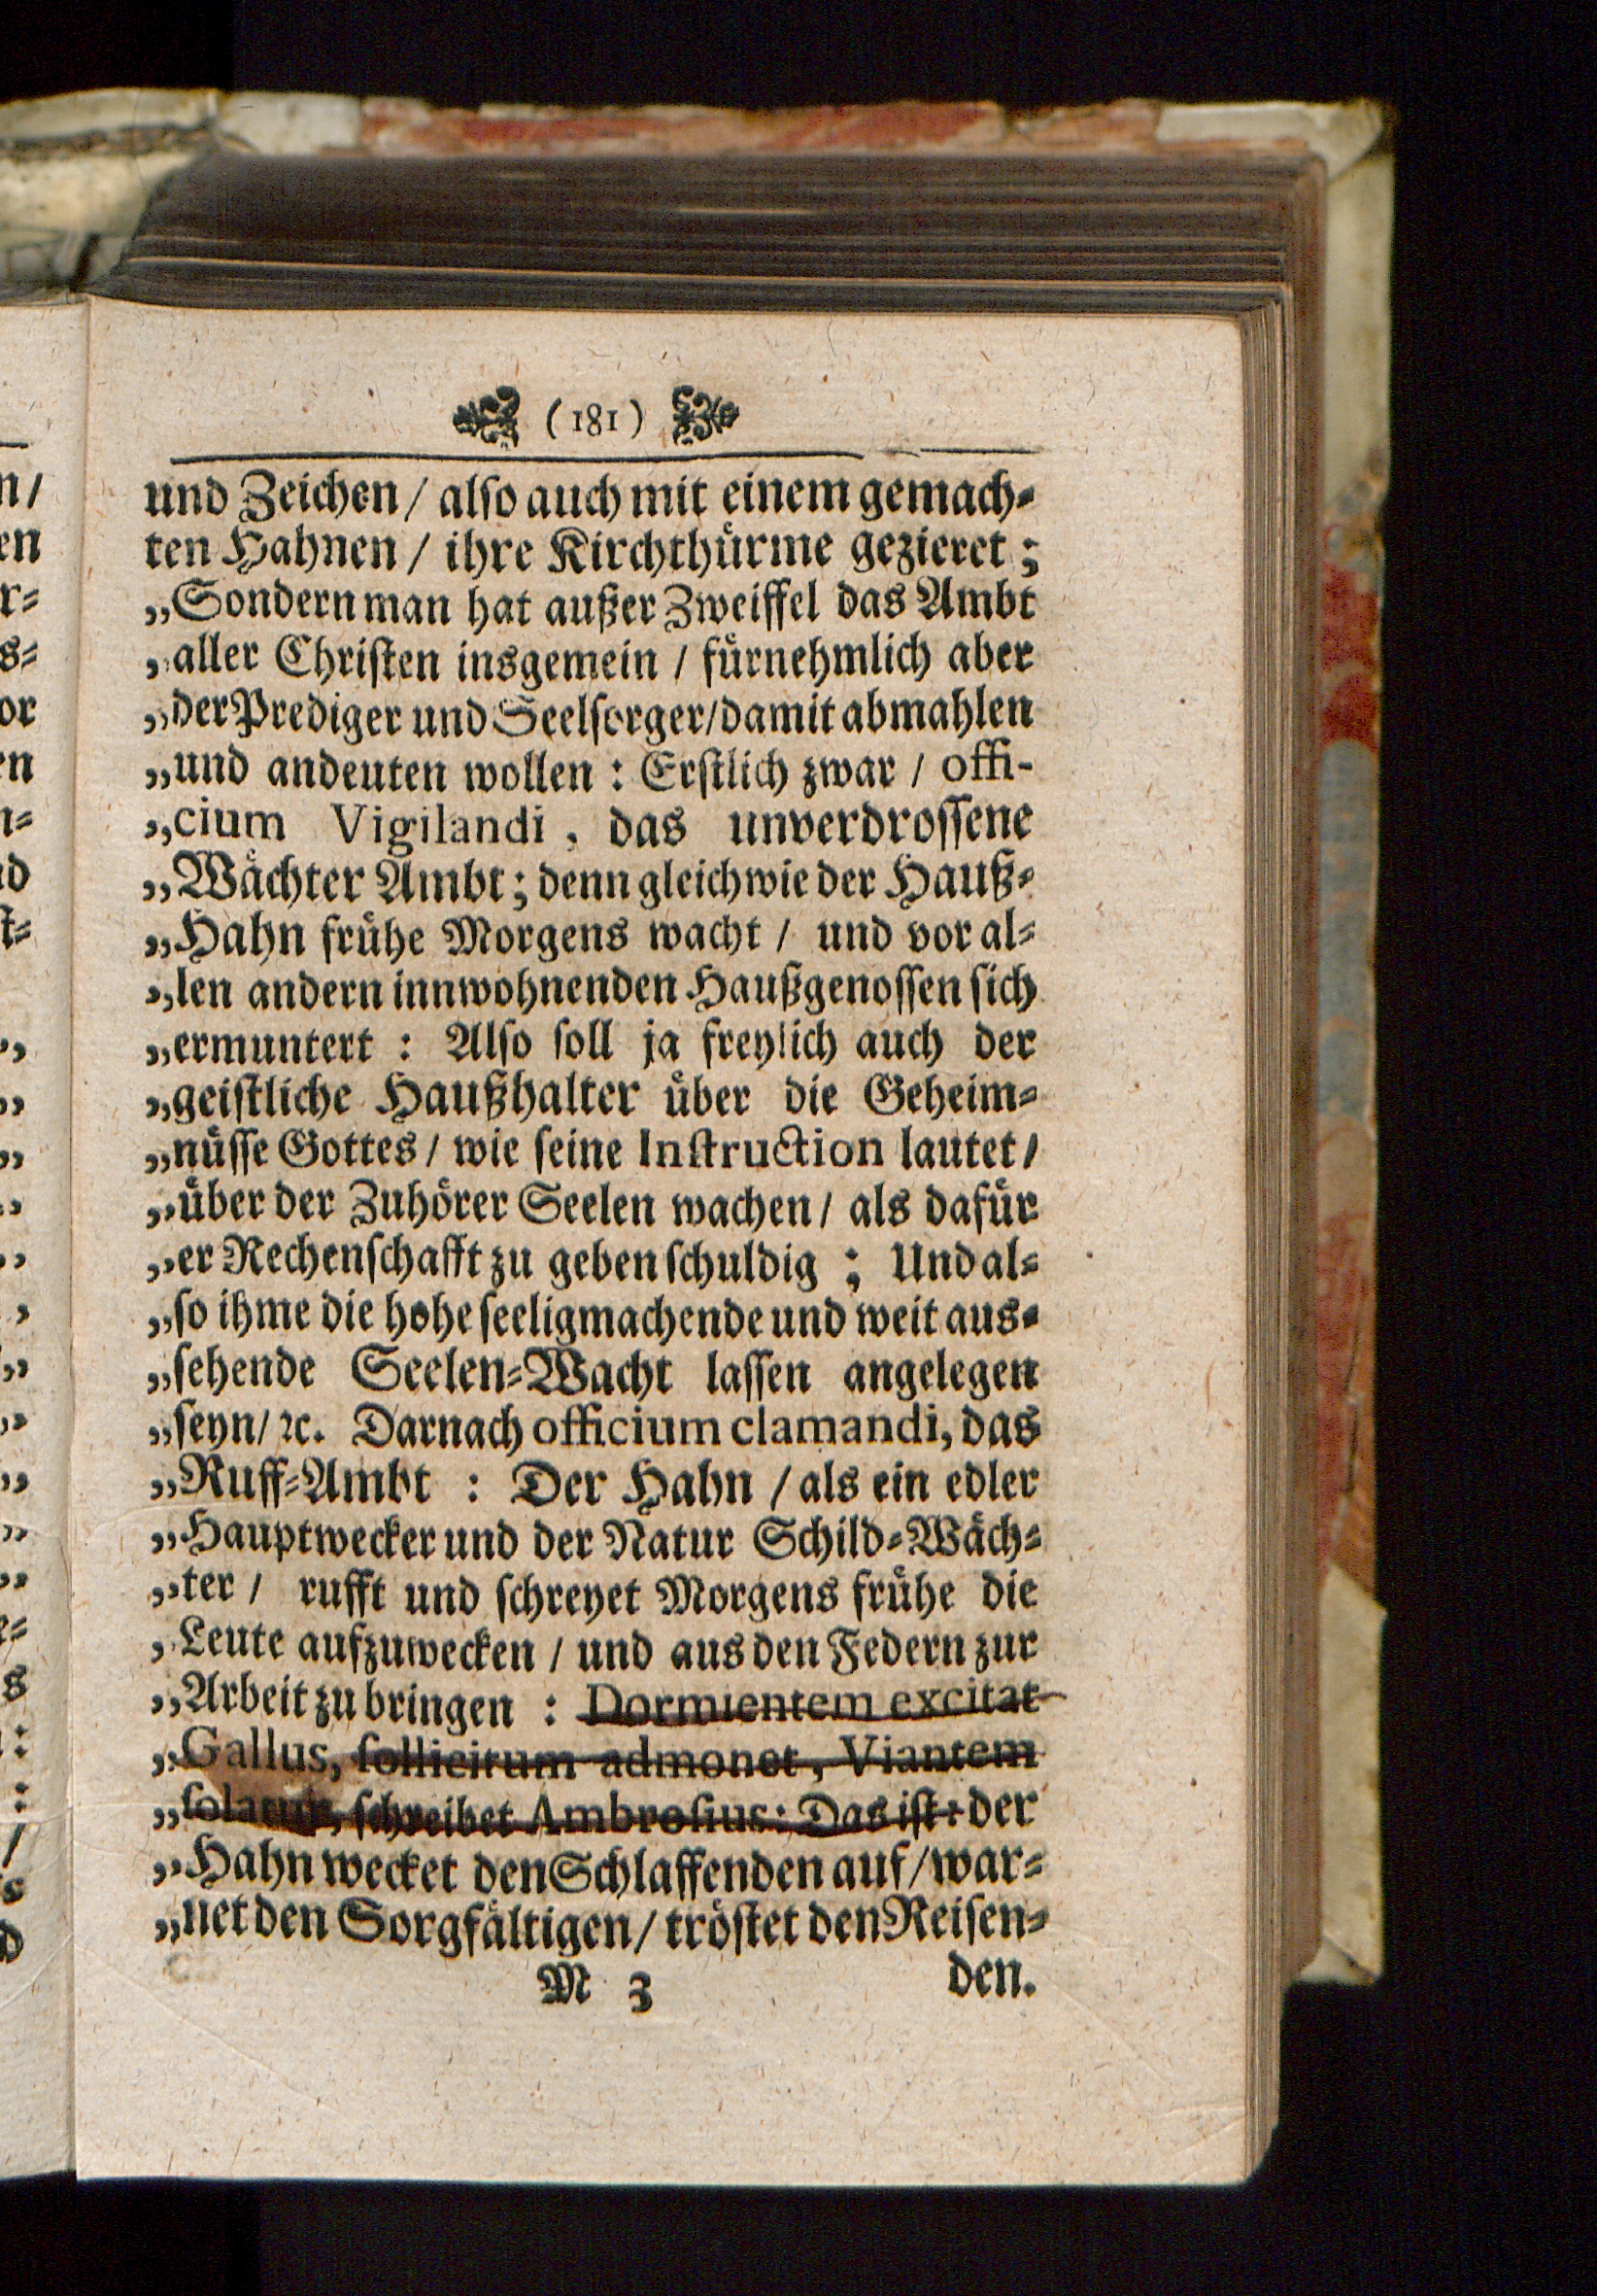 (181)
und Zeichen / alſo auch mit einem gemach⸗
ten Hahnen / ihre Kirchthuͤrme gezieret;
„Sondern man hat außer Zweiffel das Ambt
„aller Chriſten insgemein / fuͤrnehmlich aber
„der Prediger und Seelſorger / damit abmahlen
„und andeuten wollen: Erſtlich zwar / offi-
„cium Vigilandi, das unverdroſſene
„Waͤchter Ambt; denn gleichwie der Hauß⸗
„Hahn fruͤhe Morgens wacht / und vor al⸗
„len andern innwohnenden Haußgenoſſen ſich
„ermuntert: Alſo ſoll ja freylich auch der
„geiſtliche Haußhalter uͤber die Geheim⸗
„nuͤſſe Gottes / wie ſeine Inſtruction lautet /
„uͤber der Zuhoͤrer Seelen wachen / als dafuͤr
„er Rechenſchafft zu geben ſchuldig; Und al⸗
„ſo ihme die hohe ſeeligmachende und weit aus⸗
„ſehende Seelen⸗Wacht laſſen angelegen
„ſeyn / ꝛc. Darnach officium clamandi, das
„Ruff⸗Ambt: Der Hahn / als ein edler
„Hauptwecker und der Natur Schild⸗Waͤch⸗
„ter / rufft und ſchreyet Morgens fruͤhe die
„Leute aufzuwecken / und aus den Federn zur
„Arbeit zu bringen: Dormientem excitat
„Gallus, ſollicitum admonet, Viantem
„ſolatur, ſchreibet Ambroſius: Das iſt: der
„Hahn wecket den Schlaffenden auf / war⸗
„net den Sorgfaͤltigen / troͤſtet den Reiſen⸗
M 3 den.